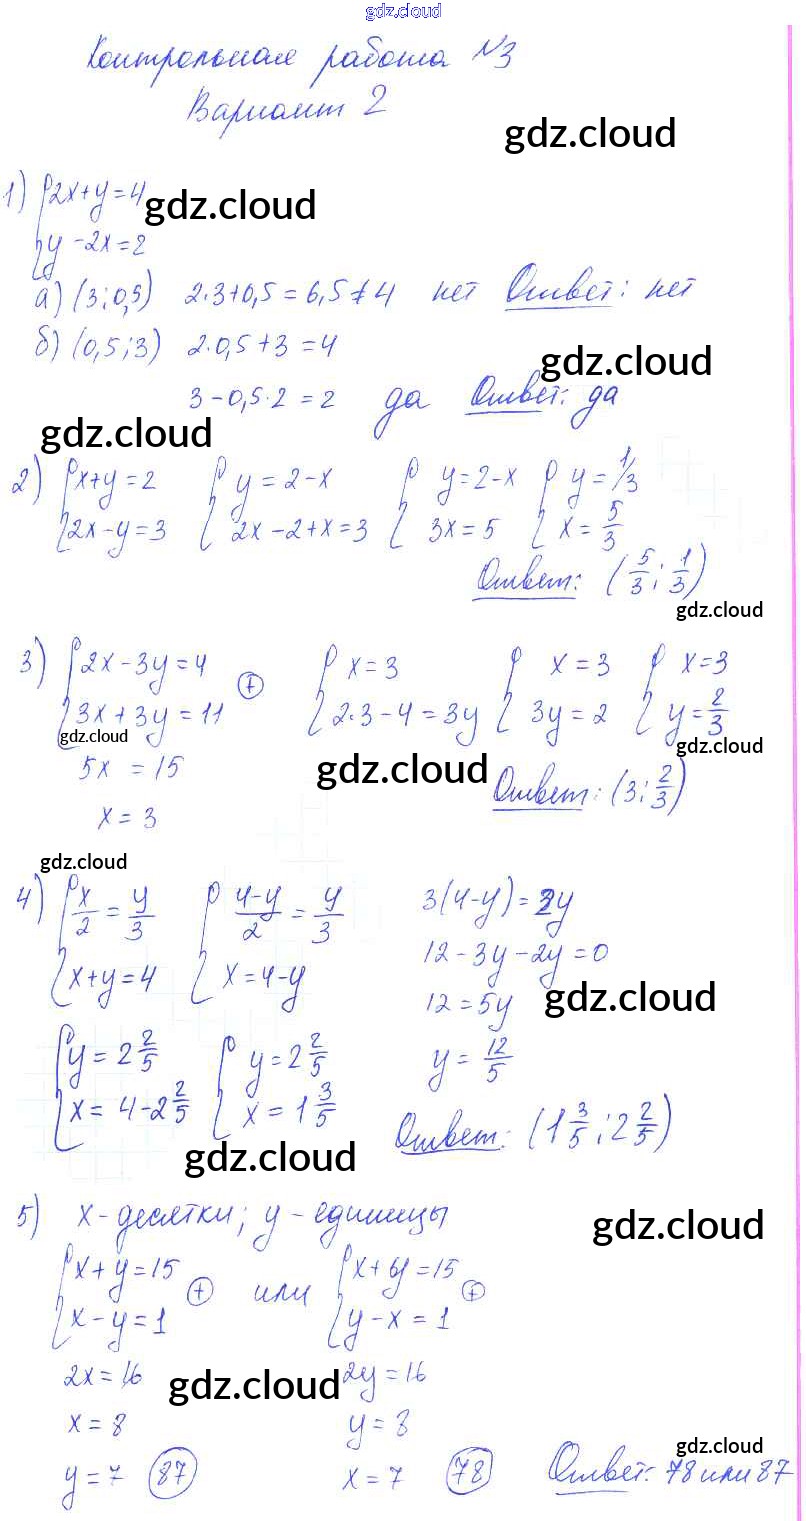 gdz.cloud
Контрольная работа №3
Вариант 2
gdz.cloud
1) {2x+y=4
gdz.cloud
y-2x=2
а) (3;0,5) 2·3+0,5=6,5≠4 нет Ответ: нет
б) (0,5;3) 2·0,5+3=4
gdz.cloud
3-0,5·2=2 да Ответ: да
gdz.cloud
2) {x+y=2 {y=2-x {y=2-x {y=1/3
2x-y=3 2x-2+x=3 3x=5 x=5/3
Ответ: (5/3; 1/3)
gdz.cloud
3) {2x-3y=4 (+) {x=3 {x=3 {x=3
3x+3y=11 2·3-4=3y 3y=2 y=2/3
gdz.cloud gdz.cloud
5x =15 gdz.cloud Ответ: (3; 2/3)
x=3
gdz.cloud
4) {x/2=y/3 {4-y/2=y/3 3(4-y)=2y
x+y=4 x=4-y 12-3y-2y=0
12=5y gdz.cloud
{y=2 2/5 {y=2 2/5 y=12/5
x=4-2 2/5 x=1 3/5
Ответ: (1 3/5; 2 2/5)
gdz.cloud
5) x-десятки; y-единицы
gdz.cloud
{x+y=15 (+) или {x+y=15 (+)
x-y=1 y-x=1
2x=16 gdz.cloud 2y=16
x=8 y=8
gdz.cloud
y=7 (87) x=7 (78) Ответ: 78 или 87